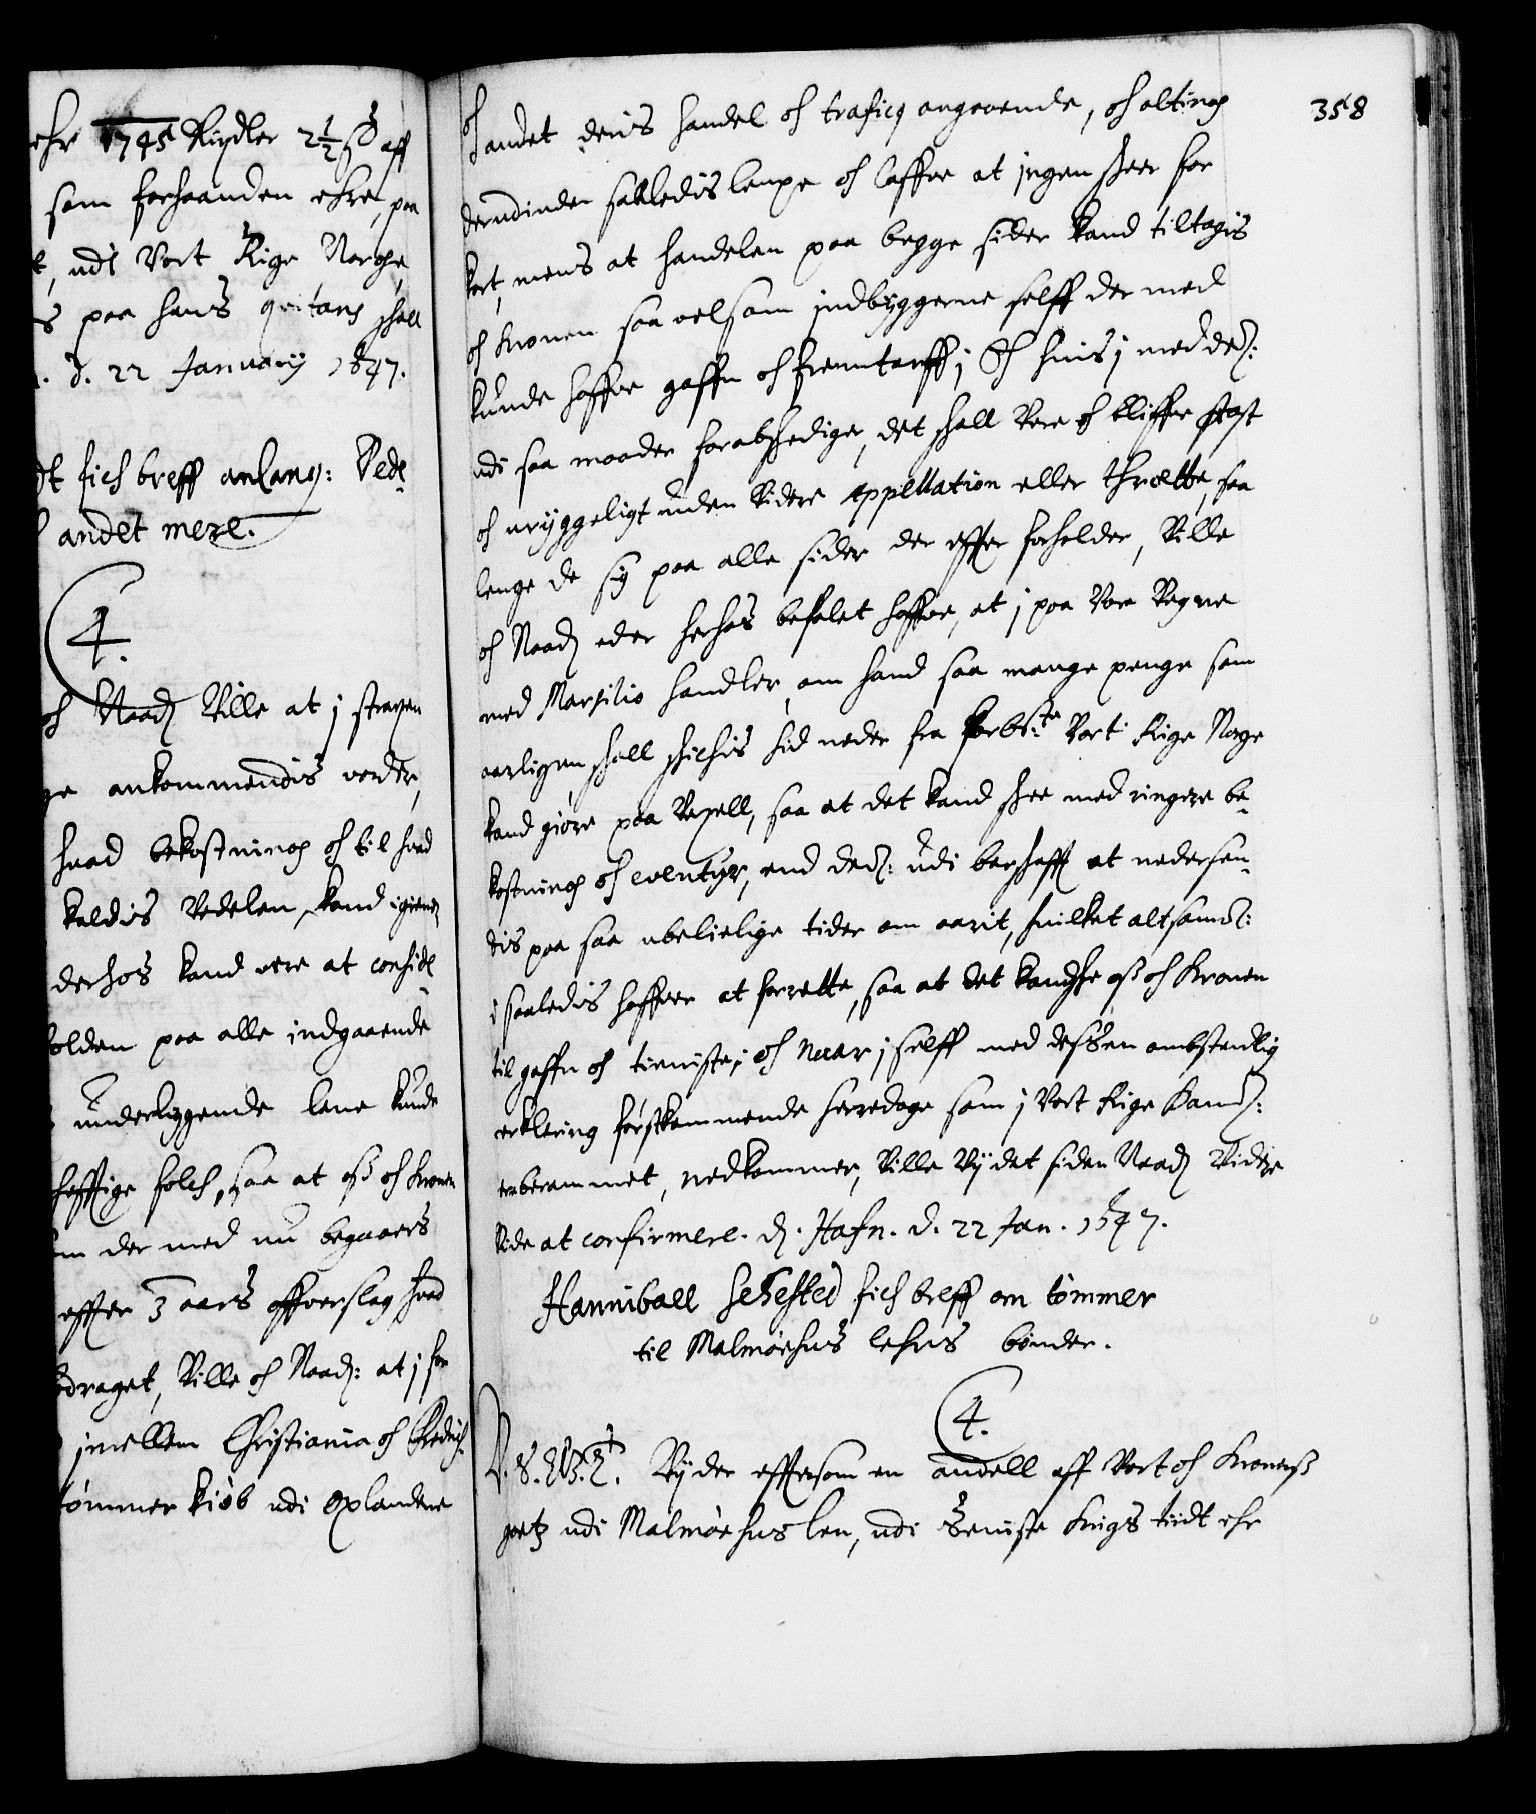 ehr 1745 Rixdler 2½ ß aff
som forhaanden ehre, paa
udi Vort Rige Norge
paa hans qvitans skall
d. 22 January 1647.
fich breff anlang: Dede
andet mere.
4.
och Naad: Ville at j strapen
ankommendis verder,
huad bekostning och til huad
kaldis Vedelen, kand igien
derhos kand vere at conside
holden paa alle indgaaende
underliggende lene kunde
hefftige folch, saa at oß och Kronen
der med nu begaaers
effter 3 aars offverslag huad
draget, Ville och Naad: at j for
jmellem Christiania och Fredrich
tømmer kiøb udi Oplandene
358
och andet deris handel och trafiq angaaende, och alting
derudinden saaledis lempe och laffve at ingen skeer for
kort, mens at handelen paa begge sider kand tiltagis
och Kronen saa velsom indbyggerne selff der med
kunde haffve gaffn och fremtarff; Och huis j med dem:
udi saa maader forabskediger, det skall Vere och bliffve fast
och uryggeligt uden Videre appellation eller thrætte, saa
lenge de sig paa alle sider der effter forholder, Ville
och Naad: eder herhos befalet haffve, at j paa Vore Vegne
med Marsilio handler, om hand saa mange penge som
aarligen skall skichis hid neder fra forbte Vort Rige Norge
kand giøre paa Vexell, saa at det kand skee med ringere be-
kostning och eventyr, end dem: udi barskafft at nedersen-
dis paa saa ubelielige tider om aarit, huilket altsammen:
i saaledis haffver at forrette, saa at det kand skee oß och Kronen
til gaffn och tieniste; och naar j selff med dessen ombstendlig
erklering førstkommende herredage som j Vort Rige Danm:
er berammet, nedkommer, Ville Vij det siden Naad: Videre
Vide at confirmere. d. Hafn. d. 22 Jan. 1647.
Hanniball Sehested fich breff om tømmer
til Malmøehus lehns bønder.
4.
Vij der effttersom en andell aff Vort och Kronens
goetz udi Malmøehus len, udi seniste Krigs tiidt ehr